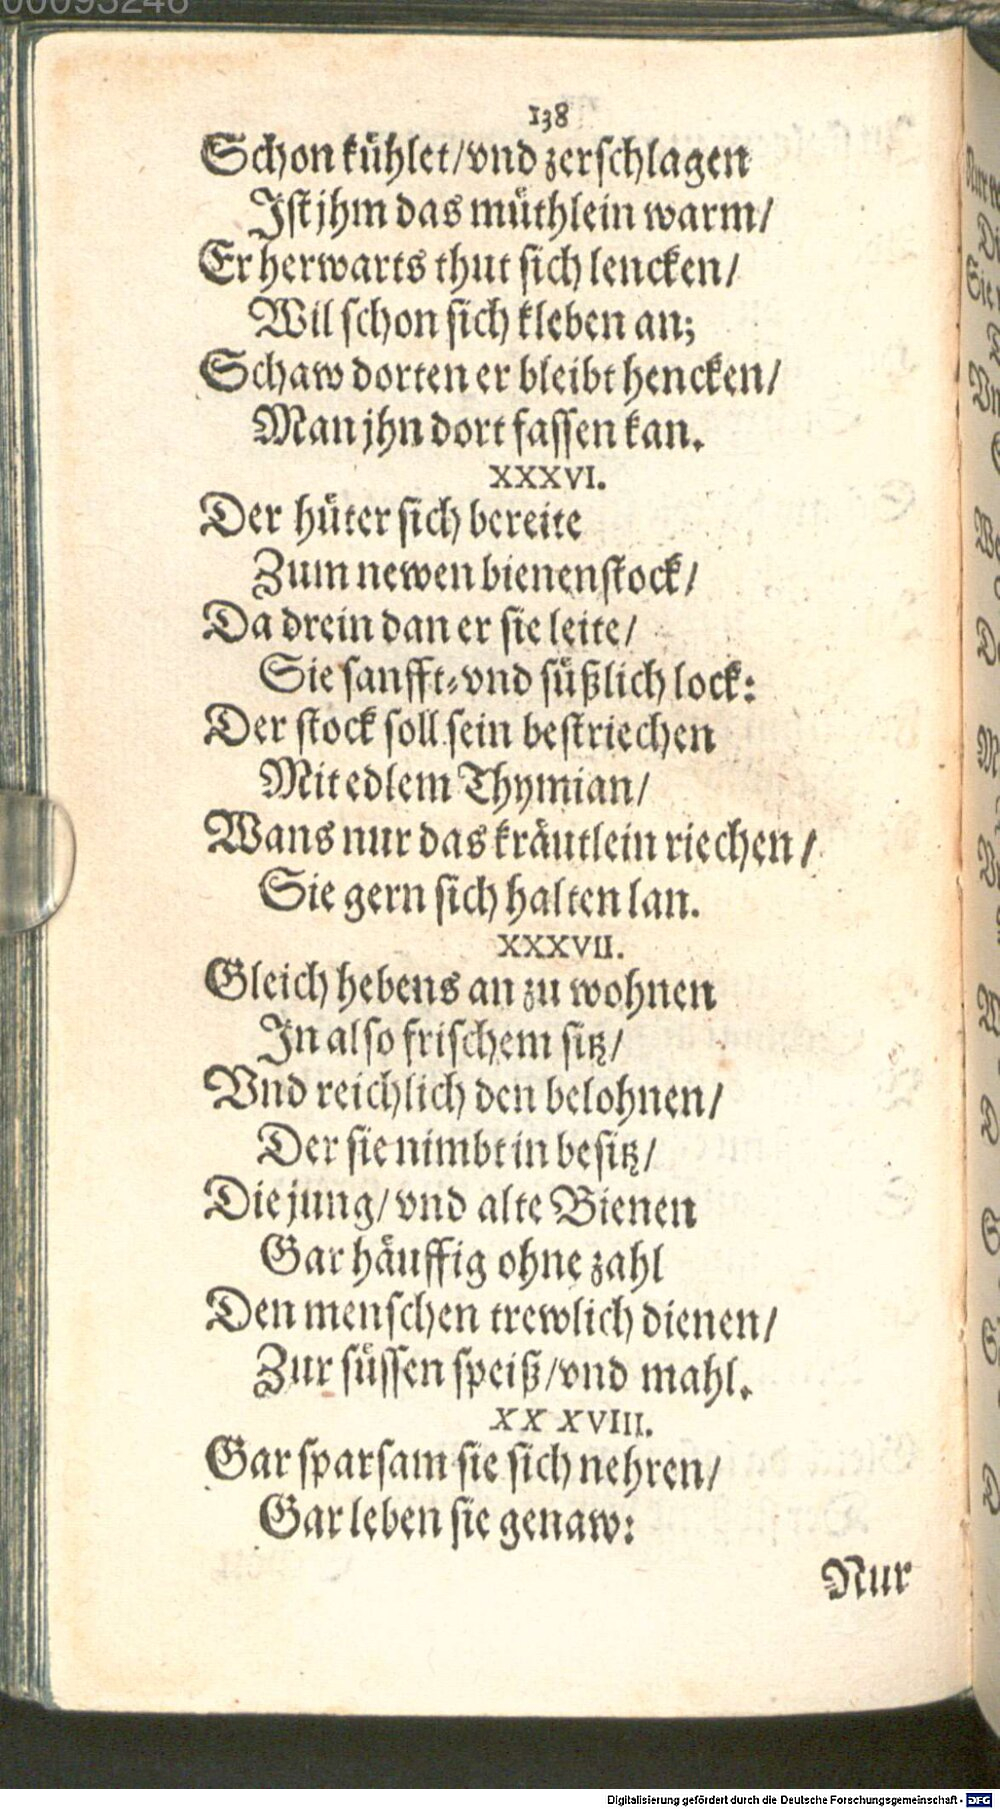 00095246
138
Schon kühlet/vnd zerschlagen
Ist jhm das müthlein warm/
Er herwarts thut sich lencken/
Wil schon sich kleben an;
Schaw dorten er bleibt hencken/
Man jhn dort fassen kan.
XXXVI.
Der hüter sich bereite
Zum newen bienenstock/
Da drein dan er sie leite/
Sie sanfft-vnd süßlich lock:
Der stock soll sein bestriechen
Mit edlem Thymian/
Wans nur das kräutlein riechen/
Sie gern sich halten lan.
XXXVII.
Gleich hebens an zu wohnen
In also frischem sitz/
Vnd reichlich den belohnen/
Der sie nimbt in besitz/
Die jung/vnd alte Bienen
Gar häuffig ohne zahl
Den menschen trewlich dienen/
Zur süssen speiß/vnd mahl.
XXXVIII.
Gar sparsam sie sich nehren/
Gar leben sie genaw:
Nur
Digitalisierung gefördert durch die Deutsche Forschungsgemeinschaft - DFG